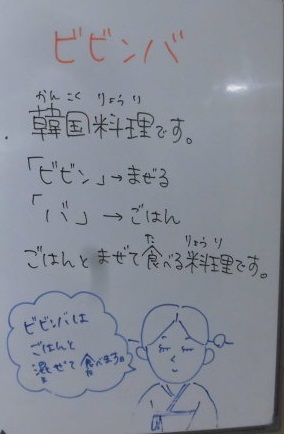 ビビンバ
かんこく りょうり
韓国料理です。
「ビビン」→まぜる
「バ」→ごはん
た りょうり
ごはんとまぜて食べる料理です。
ビビンバは
ごはんと
混ぜて食べます。
ま た